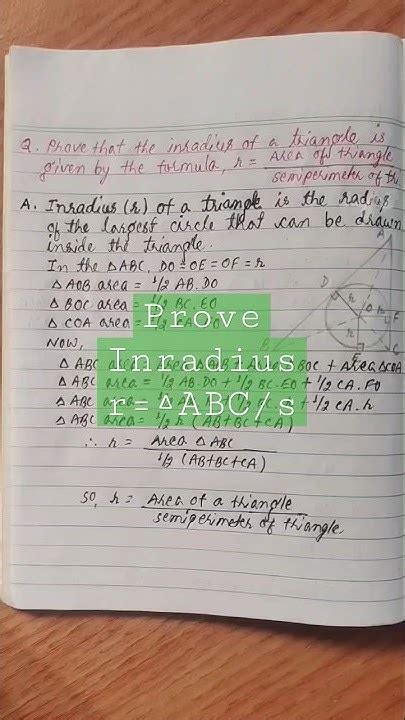 Q. Prove that the inradius of a triangle is
given by the formula, r = Area of triangle
semiperimeter of tri
A. Inradius (r) of a triangle is the radius
of the largest circle that can be drawn
inside the triangle.
In the ΔABC, DO = OE = OF = r
Δ AOB area = 1/2 AB. DO
Δ BOC area = 1/2 BC. EO
Δ COA area = 1/2 CA
Now,
Δ ABC BOC + Area ΔCOA
Δ ABC area = 1/2 AB. DO + 1/2 BC. EO + 1/2 CA. FO
Δ ABC + 1/2 CA. r
Δ ABC area = 1/2 r (AB+BC+CA)
∴ r = Area Δ ABC
1/2 (AB+BC+CA)
So, r = Area of a triangle
semiperimeter of triangle
A
D
r
O
r
F
r
B
E
C
Prove
Inradius
r=ΔABC/s